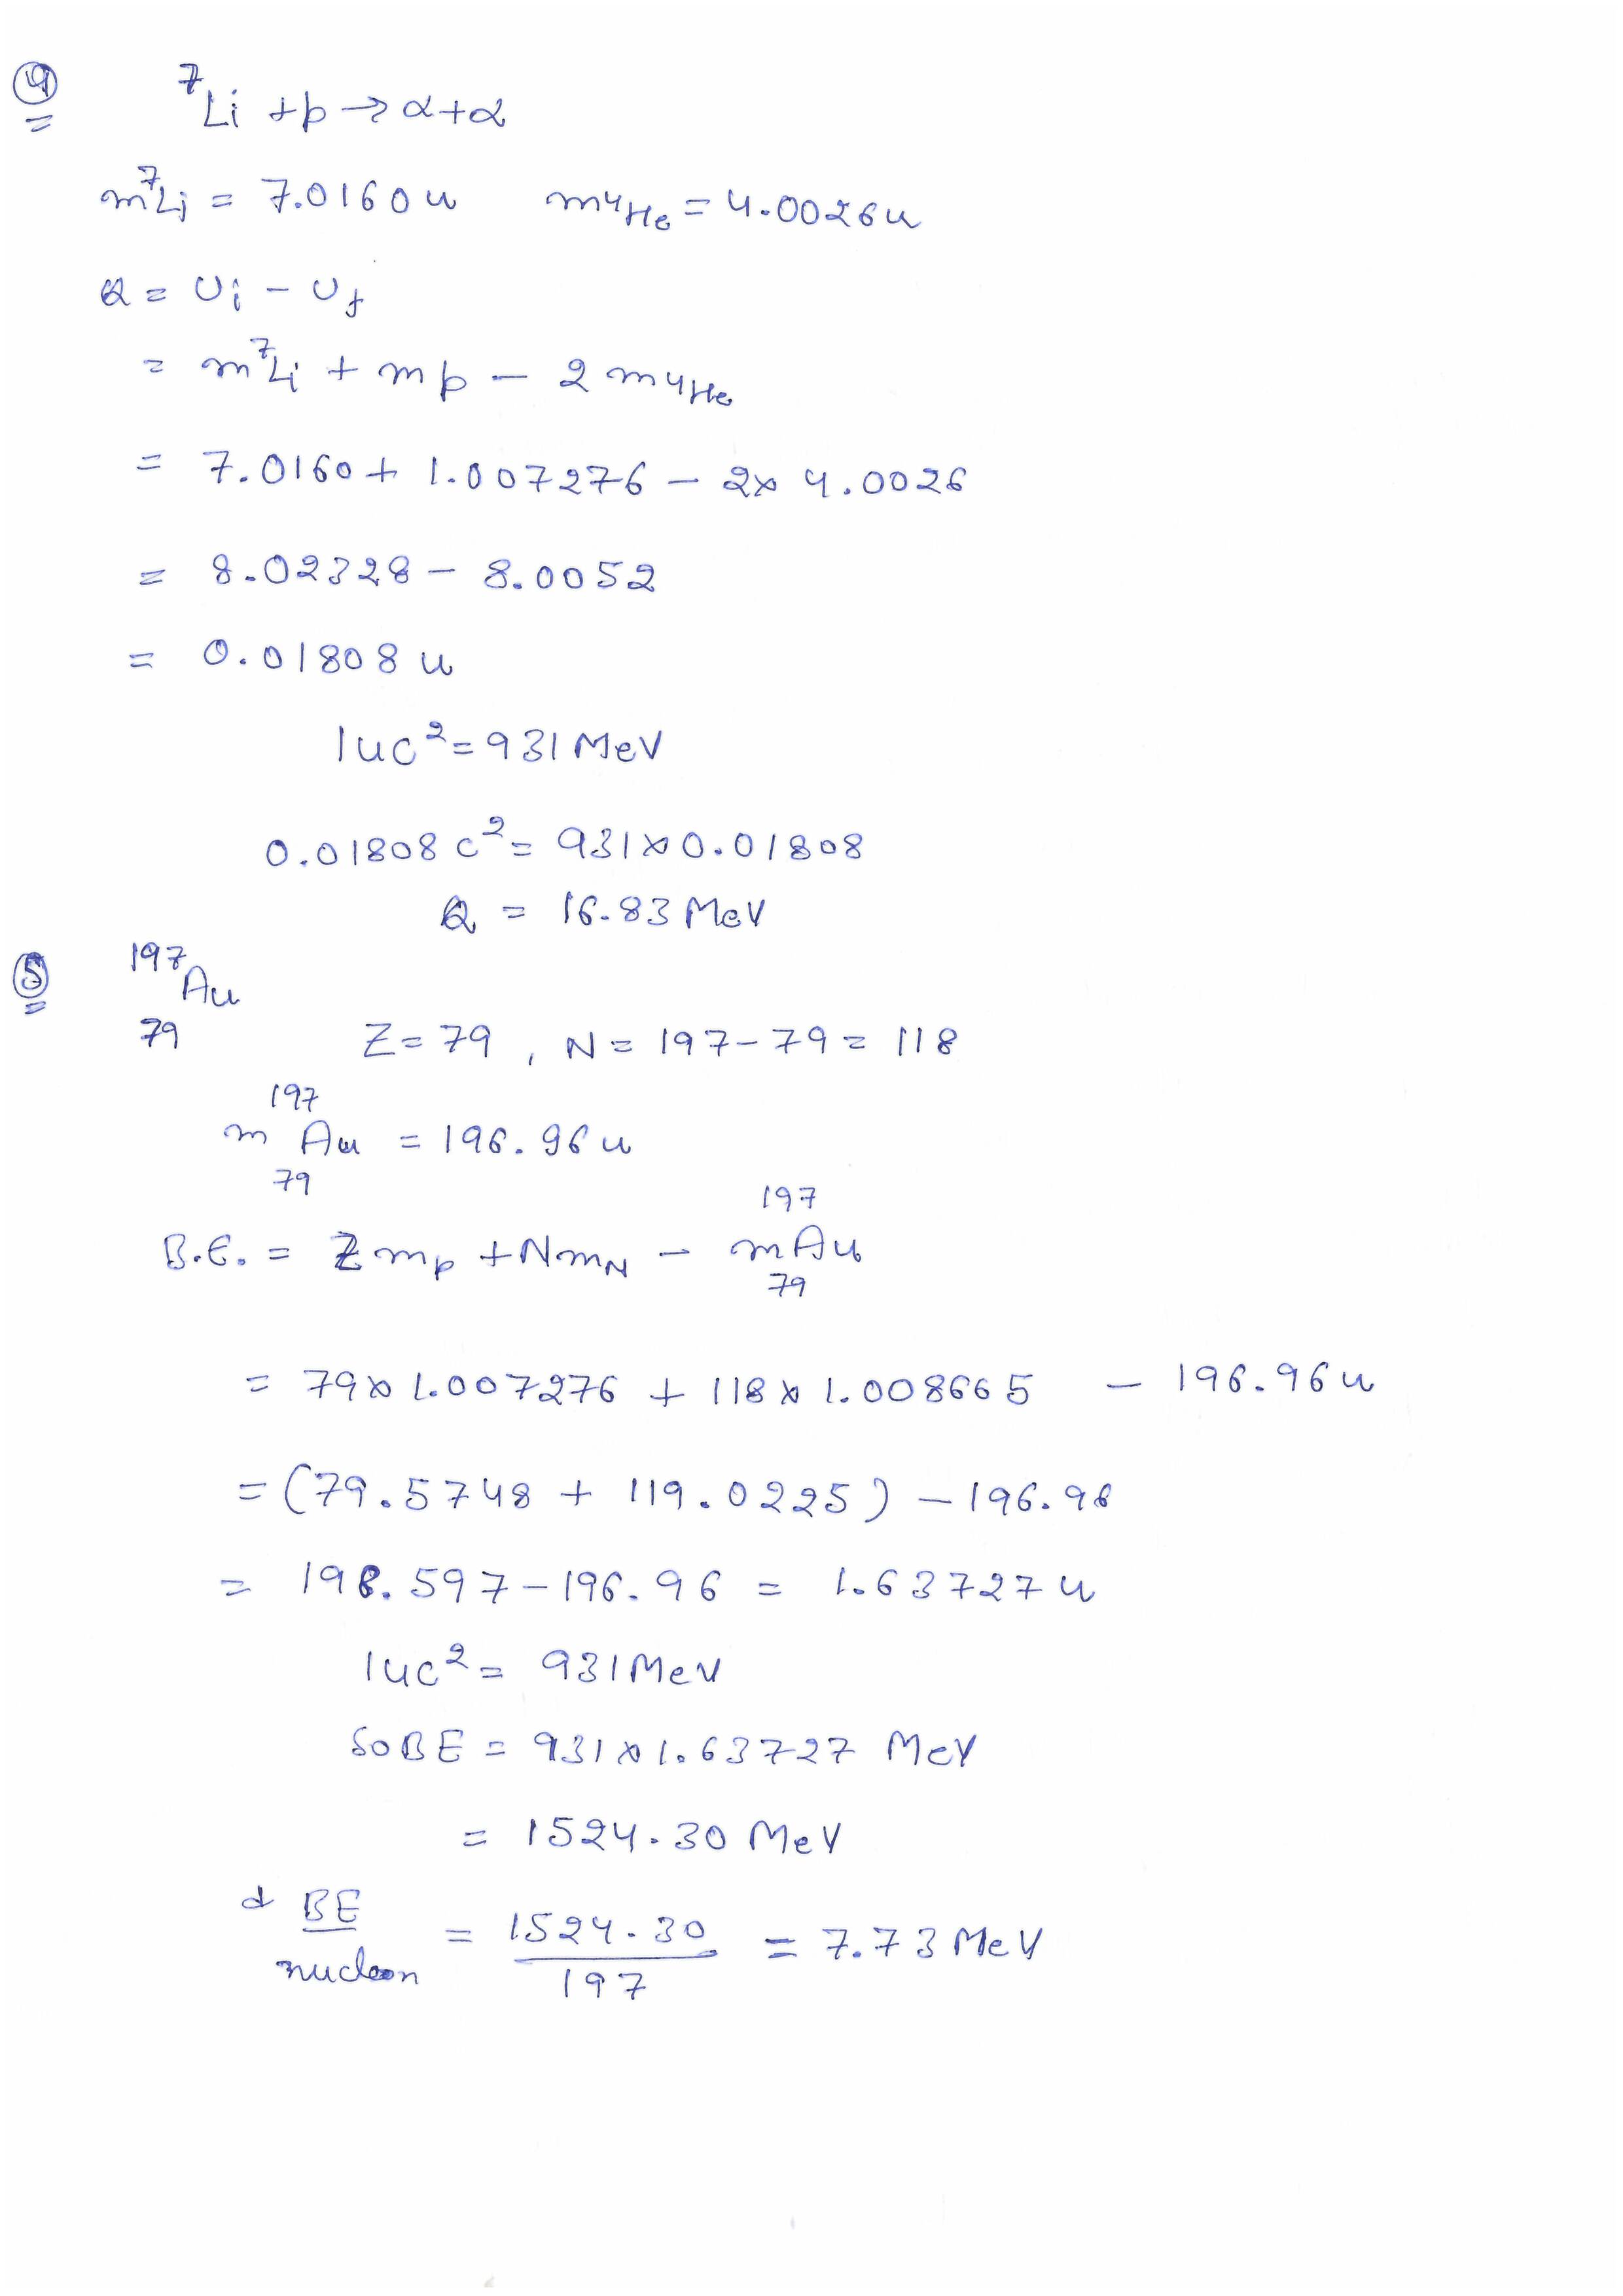 ④ ⁷Li + p → α + α
m⁷Li = 7.0160 u m⁴He = 4.0026 u
Q = Ui - Uf
= m⁷Li + mp - 2 m⁴He
= 7.0160 + 1.007276 - 2 × 4.0026
= 8.02328 - 8.0052
= 0.01808 u
1uc² = 931 MeV
0.01808 c² = 931 × 0.01808
Q = 16.83 MeV
⑤ ¹⁹⁷₇₉Au
Z = 79 , N = 197 - 79 = 118
m ¹⁹⁷₇₉Au = 196.96 u
B.E. = Z mp + N mN - m ¹⁹⁷₇₉Au
= 79 × 1.007276 + 118 × 1.008665 - 196.96 u
= (79.5748 + 119.0225) - 196.96
= 198.597 - 196.96 = 1.63727 u
1uc² = 931 MeV
So BE = 931 × 1.63727 MeV
= 1524.30 MeV
& BE/nucleon = 1524.30/197 = 7.73 MeV